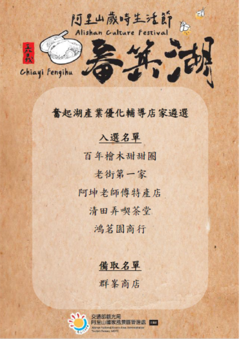 阿里山歲時生活節
Alishan Culture Festival
嘉義
Chiayi Fengihu
奮箕湖
奮起湖產業優化輔導店家遴選
入選名單
百年檜木甜甜圈
老街第一家
阿坤老師傅特產店
清田弄喫茶堂
鴻茗園商行
備取名單
群峯商店
交通部觀光署
阿里山國家風景區管理處